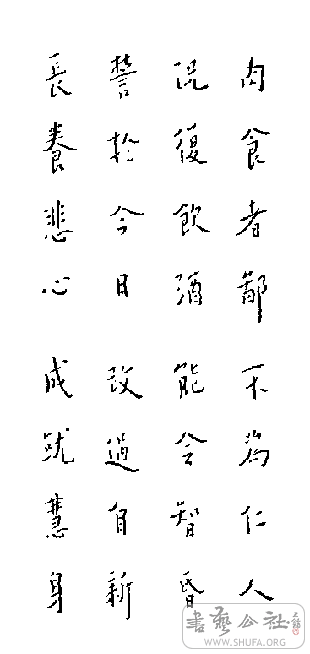 肉食者鄙 不為仁人
況復飲酒 能令智昏
誓於今日 改過自新
長養悲心 成就慧身
書藝公社
WWW.SHUFA.ORG